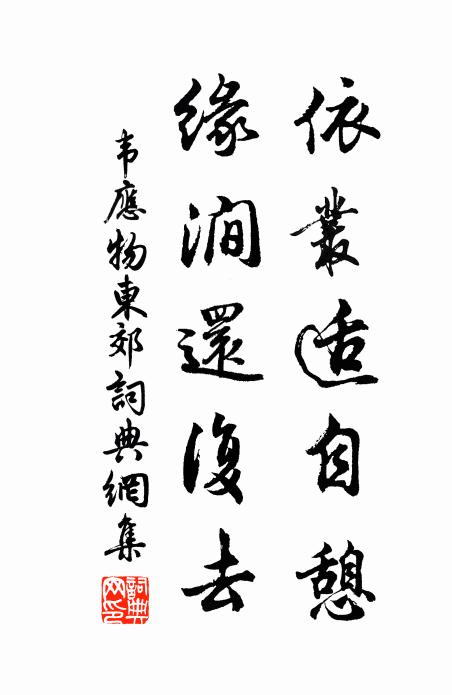 依叢适自憩
緣澗還復去
韦應物東郊詞典網集
詞典網印